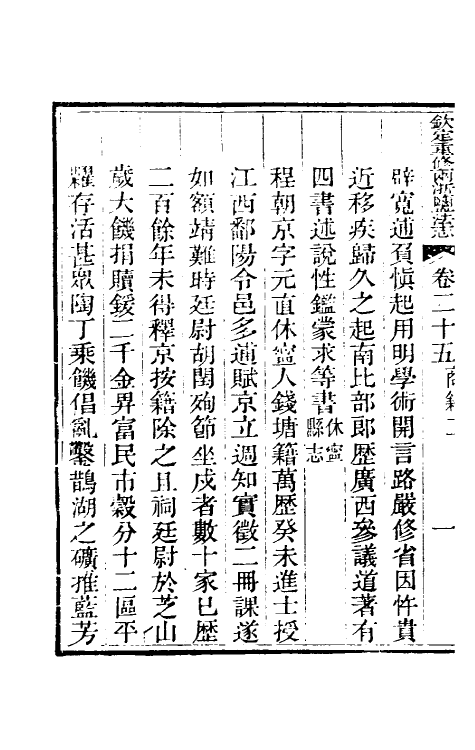 欽定重修兩浙鹽法志 卷二十五 商籍二 一
辟寬逋負愼起用明學術開言路嚴修省因忤貴
近移疾歸久之起南比部郞歷廣西參議道著有
四書述說性鑑蒙求等書休寧縣志
程朝京字元直休寧人錢塘籍萬歷癸未進士授
江西鄱陽令邑多逋賦京立週知實徵二冊課遂
如額靖難時廷尉胡閏殉節坐戍者數十家已歷
二百餘年未得釋京按籍除之且祠廷尉於芝山
歲大饑捐贖鍰二千金畀富民市穀分十二區平
糶存活甚眾陶丁乘饑倡亂鑿鵲湖之礦推藍芳